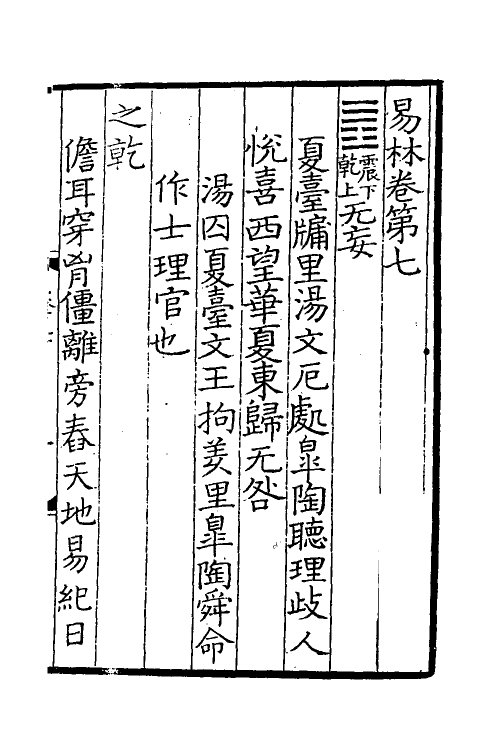 易林卷第七
震下乾上无妄
夏臺牖里湯文厄處臯陶聽理歧人
悅喜西望華夏東歸无咎
湯囚夏臺文王拘羑里臯陶舜命
作士理官也
之乾
儋耳穿胷僵離旁舂天地易紀日